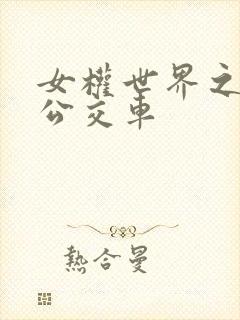 女權世界之
公交車
熱合曼